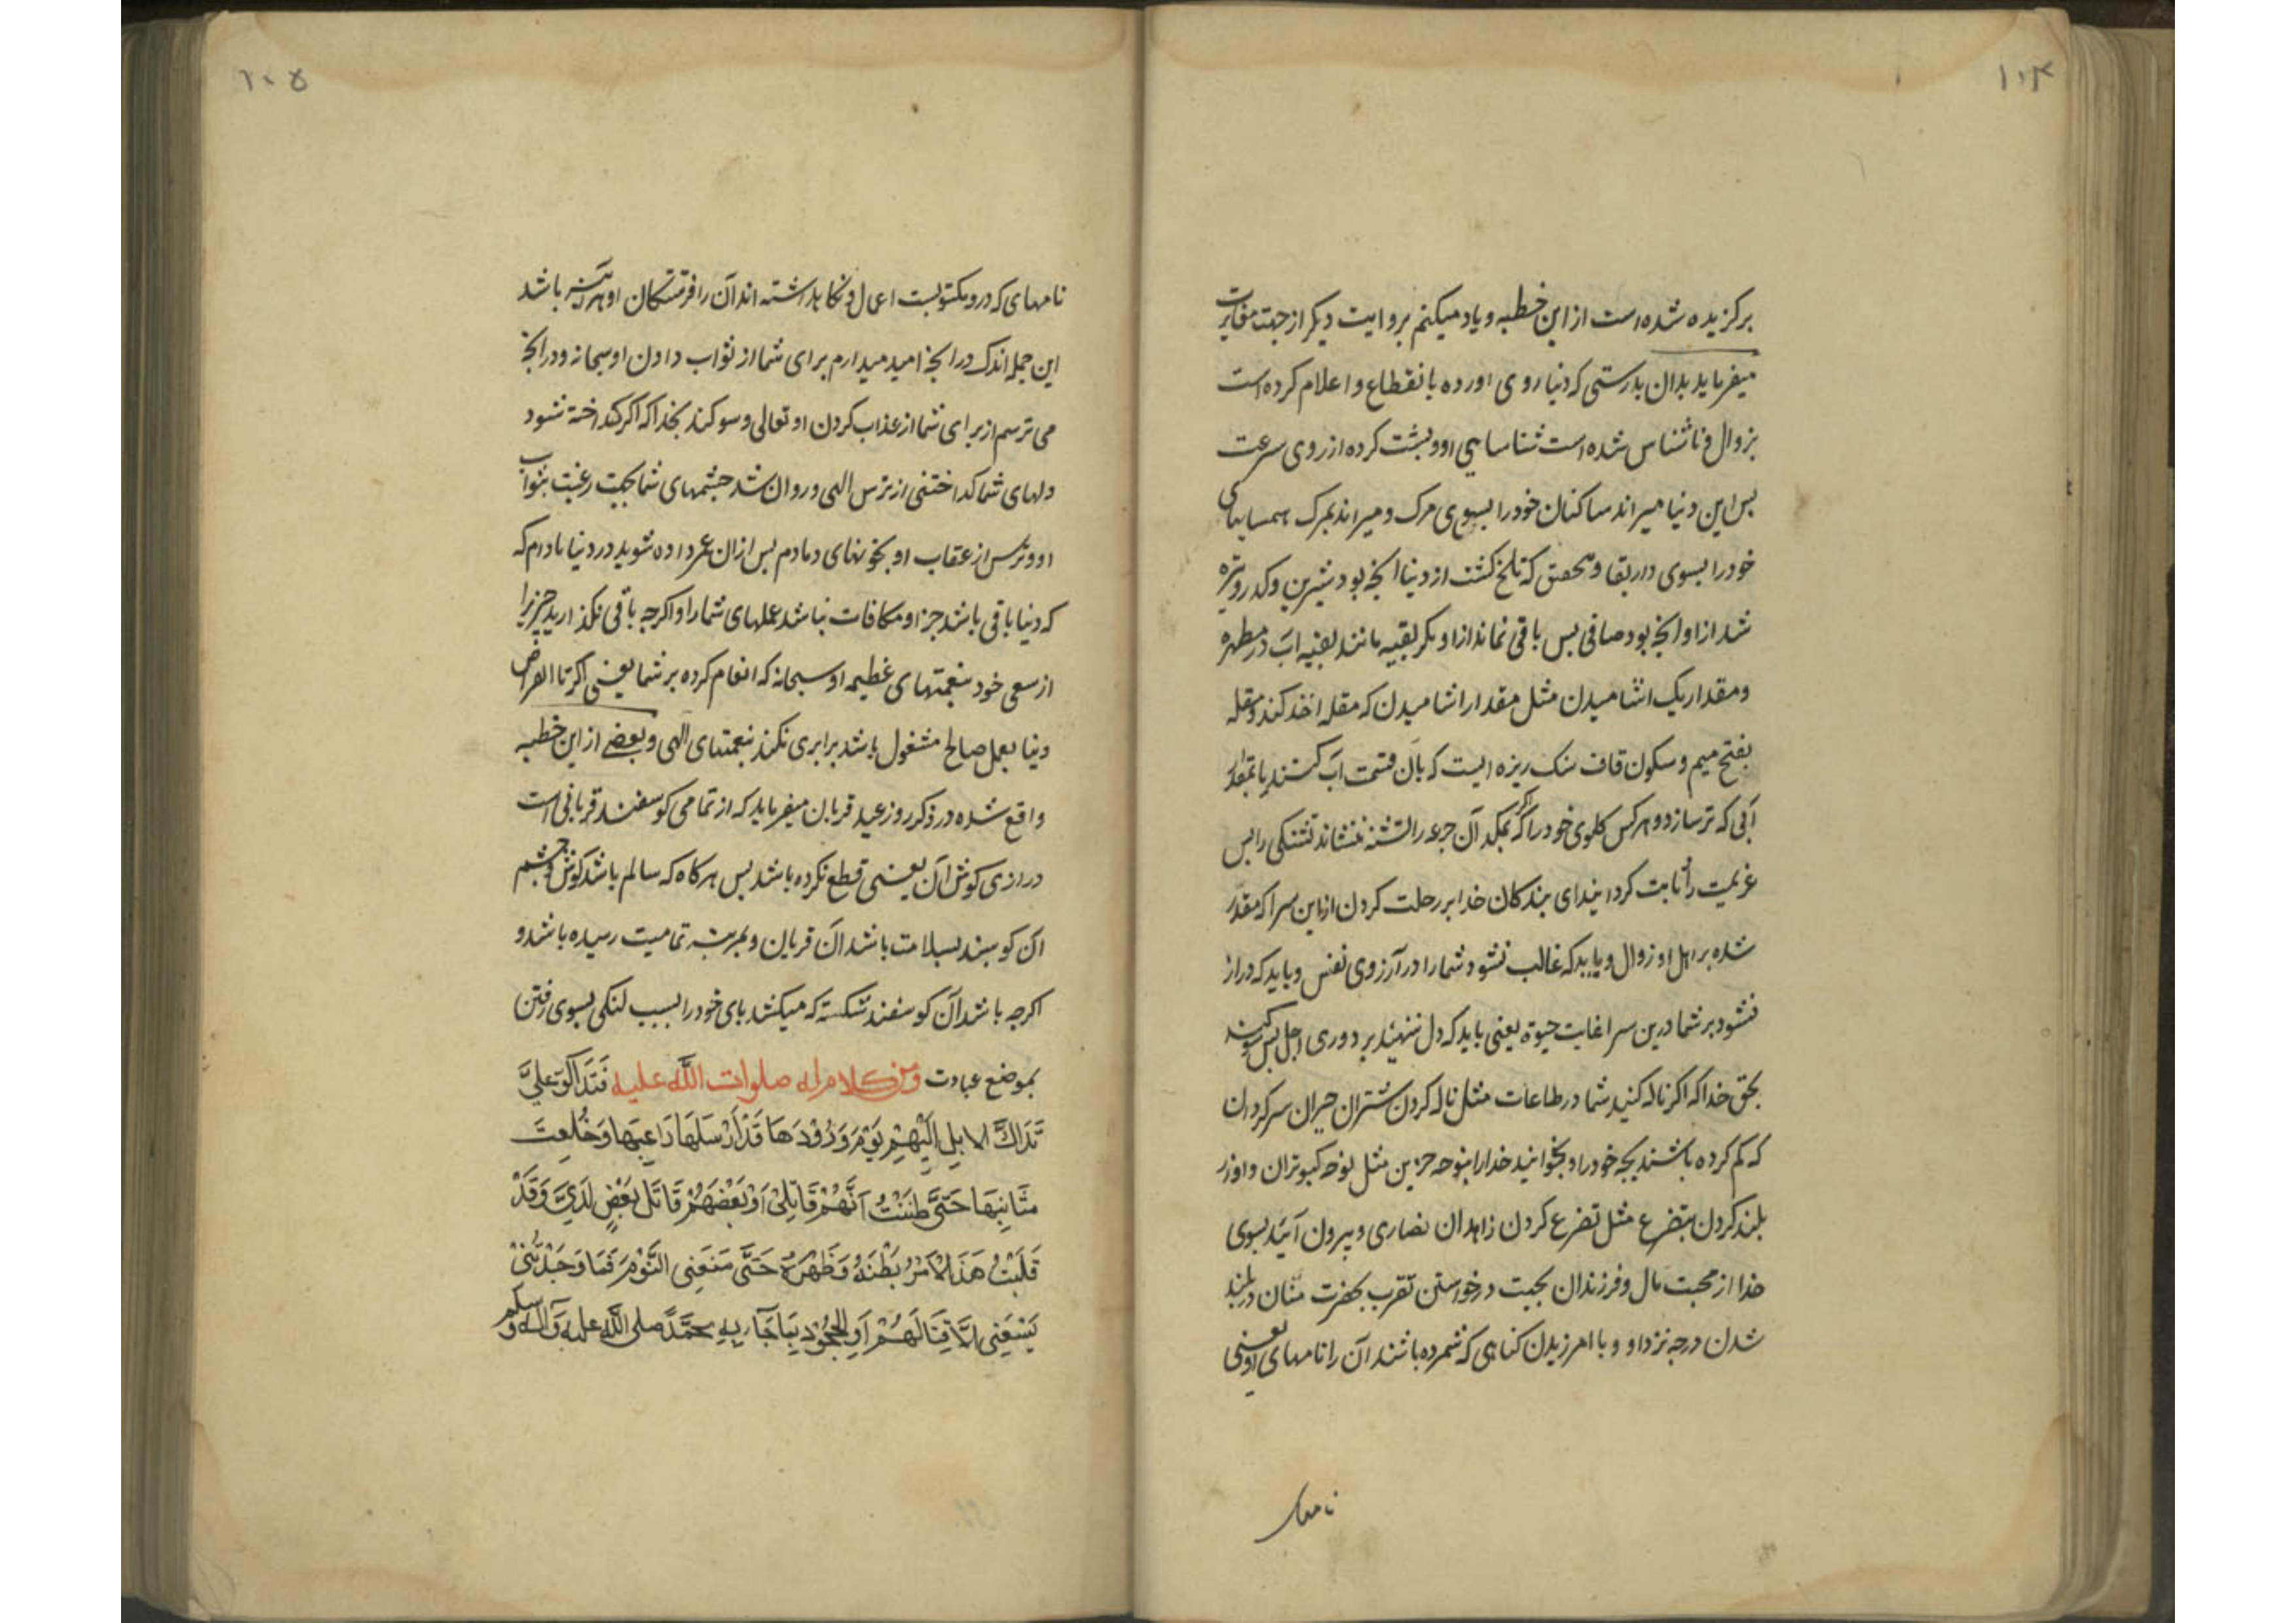 ۱۰۴
برکزیده شده است از این خطبه و یاد میکنم بروایت دیکر از جهت مغایرت
میفرماید بدان بدرستی که دنیا روی اورده بانقطاع و اعلام کرده است
بزوال و ناشناس شده است شناسایی او و پشت کرده از روی سرعت
پس این دنیا میراند ساکنان خود را بسوی مرک و میراند بمرک همسایهای
خود را بسوی دار بقا و بتحقیق که تلخ کشت از دنیا انچه بود شیرین و کدر و تیره
شد از او انچه بود صافی پس باقی نماند از او مکر بقیه مانند بقیه اب در مطهره
و مقدار یک اشامیدن مثل مقدار اشامیدن که مقله اخذ کند و مقله
بفتح میم و سکون قاف سنک ریزه ایست که بآن قسمت اب کنند بمقدار
آبی که تر سازد و هر کس کلوی خود را که اکر بمکد آن جرعه را تشنه ننشاند تشنکی را پس
عزیمت را ثابت کردانید ای بندکان خدا بر رحلت کردن از این سرا که مقدر
شده بر اهل او زوال و باید که غالب نشود شما را در آرزوی نفس و باید که دراز
نشود بر شما درین سرا غایت حیوة یعنی باید که دل ننهید بر دوری اجل پس سوکند
بحق خدا که اکر ناله کنید شما در طاعات مثل ناله کردن شتران حیران سرکردان
که کم کرده باشند بچه خود را و بخوانید خدا را بنوحه حزین مثل نوحه کبوتران و اواز
بلند کردن بتضرع مثل تضرع کردن زاهدان نصاری و بیرون آئید بسوی
خدا از محبت مال و فرزندان بجهت درخواستن تقرب بحضرت منّان در بلند
شدن درجه نزد او و یا امرزیدن کناهی که شمرده باشند آن را نامهای او یعنی
نامهای
۱۰۵
نامهای که درو مکتوبست اعمال و نکاهداشته اند آن را فرشتکان او هر آینه باشد
این جمله اندک در انچه امید میدارم برای شما از ثواب دادن او سبحانه و در انچه
می ترسم از برای شما از عذاب کردن او تعالی و سوکند بخدا که اکر کداخته شود
دلهای شما کداختنی از ترس الهی و روان شد چشمهای شما بجهت رغبت بثواب
او و ترس از عقاب او بخونهای دمادم پس ازان عمر داده شوید در دنیا مادام که
که دنیا باقی باشد جزا و مکافات نباشد عملهای شما را و اکرچه باقی نکذارید چیزیرا
از سعی خود نعمتهای عظیمه او سبحانه که انعام کرده بر شما یعنی اکر تا انقراض
دنیا بعمل صالح مشغول باشد برابری نکند نعمتهای الهی و بعضی از این خطبه
واقع شده در ذکر روز عید قربان میفرماید که از تمامی کوسفند قربانی است
درازی کوش آن یعنی قطع نکرده باشد پس هرکاه که سالم باشد کوش و چشم
آن کوسپند بسلامت باشد آن قربان و بمرتبه تمامیت رسیده باشد و
اکرچه باشد آن کوسفند شکسته که میکشد پای خود را بسبب لنکی بسوی رفتن
بموضع عبادت وَمِن کلام له صلوات الله علیه فَتَدَاکّوا عَلَیَّ
تَدَاكَّ الابِلِ الَیْهِمِ یَوْمَ وَرُوْدِهَا قَدْ اَرْسَلَهَا رَاعِیهَا وَخُلِعَتْ
مَثَانِیهَا حَتَّی ظَنَنْتُ اَنَّهُمْ قَاتِلِیْ اَوْ بَعْضَهُمْ قَاتِلُ بَعْضٍ لَدَیَّ وَقَدْ
قَلَبْتُ هَذَا الْاَمْرَ بَطْنَهُ وَظَهْرَهُ حَتَّی مَنَعَنِی النَّوْمَ فَمَا وَجَدْتُنِیْ
یَسَعُنِی الَّا قِتَالَهُمْ اَوِ الْجُحُوْدِ بِمَا جَآءَ بِهِ مُحَمَّدٌ صلی الله علیه وآله وسلم